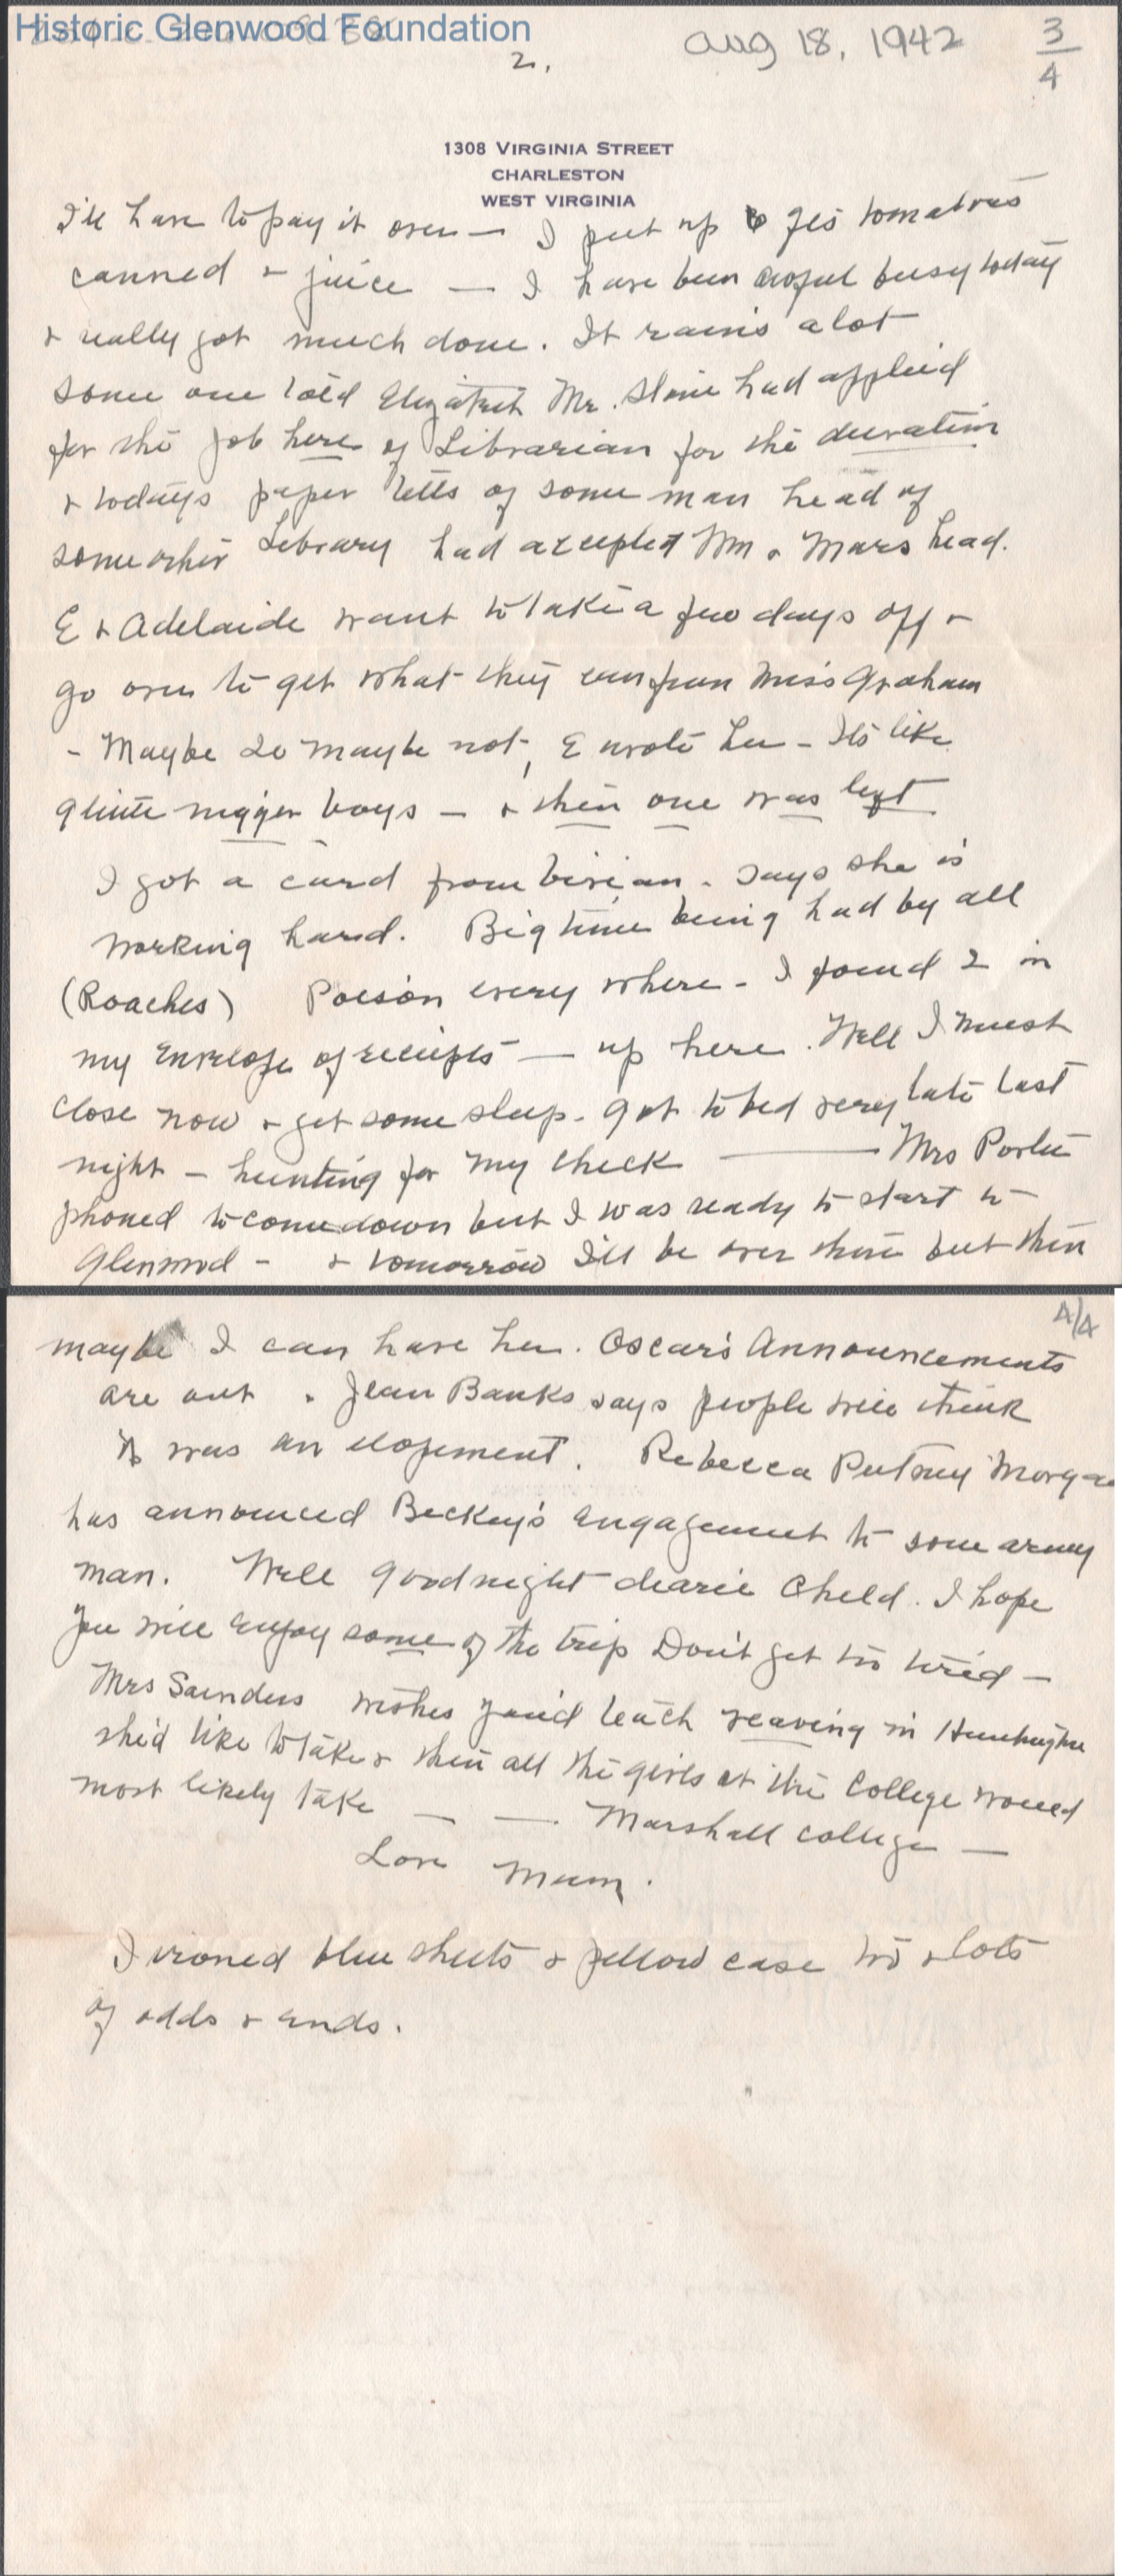 Historic Glenwood Foundation
Aug 18, 1942
3/4
2.
1308 VIRGINIA STREET
CHARLESTON
WEST VIRGINIA
I'll have to pay it over — I put up 6 qts tomatoes
canned + juice — I have been awful busy today
+ really got much done. It rains a lot
some one told Elizabeth Mr. Stone had applied
for the job here of Librarian for the duration
+ todays paper tells of some man head of
some other Library had accepted Wm + Marys head.
E + Adelaide want to take a few days off +
go over to get what they can from Miss Graham
- Maybe so maybe not, E wrote her - Its like
nigger boys — + then one was left
I got a card from Vivian - says she is
working hard. Big time being had by all
(Roaches) Poison every where - I found 2 in
my Envelope of receipts — up here. Well I must
close now + get some sleep - got to bed very late last
night — hunting for my check — Mrs Porter
phoned to come down but I was ready to start to
Glenwood - + tomorrow I'll be over there but then
4/4
maybe I can have her. Oscar's Announcements
are out. Jean Banks says people will think
it was an elopement. Rebecca Putney Morgan
has announced Beckey's engagement to some army
man. Well goodnight dearie Child. I hope
you will enjoy some of the trip Don't get too tired —
Mrs Saunders wishes you'd teach weaving in Huntington
she'd like to take + then all the girls at the College would
most likely take — — Marshall College —
Love Mum.
I ironed blue sheets + pillow case too + lots
of odds + ends.